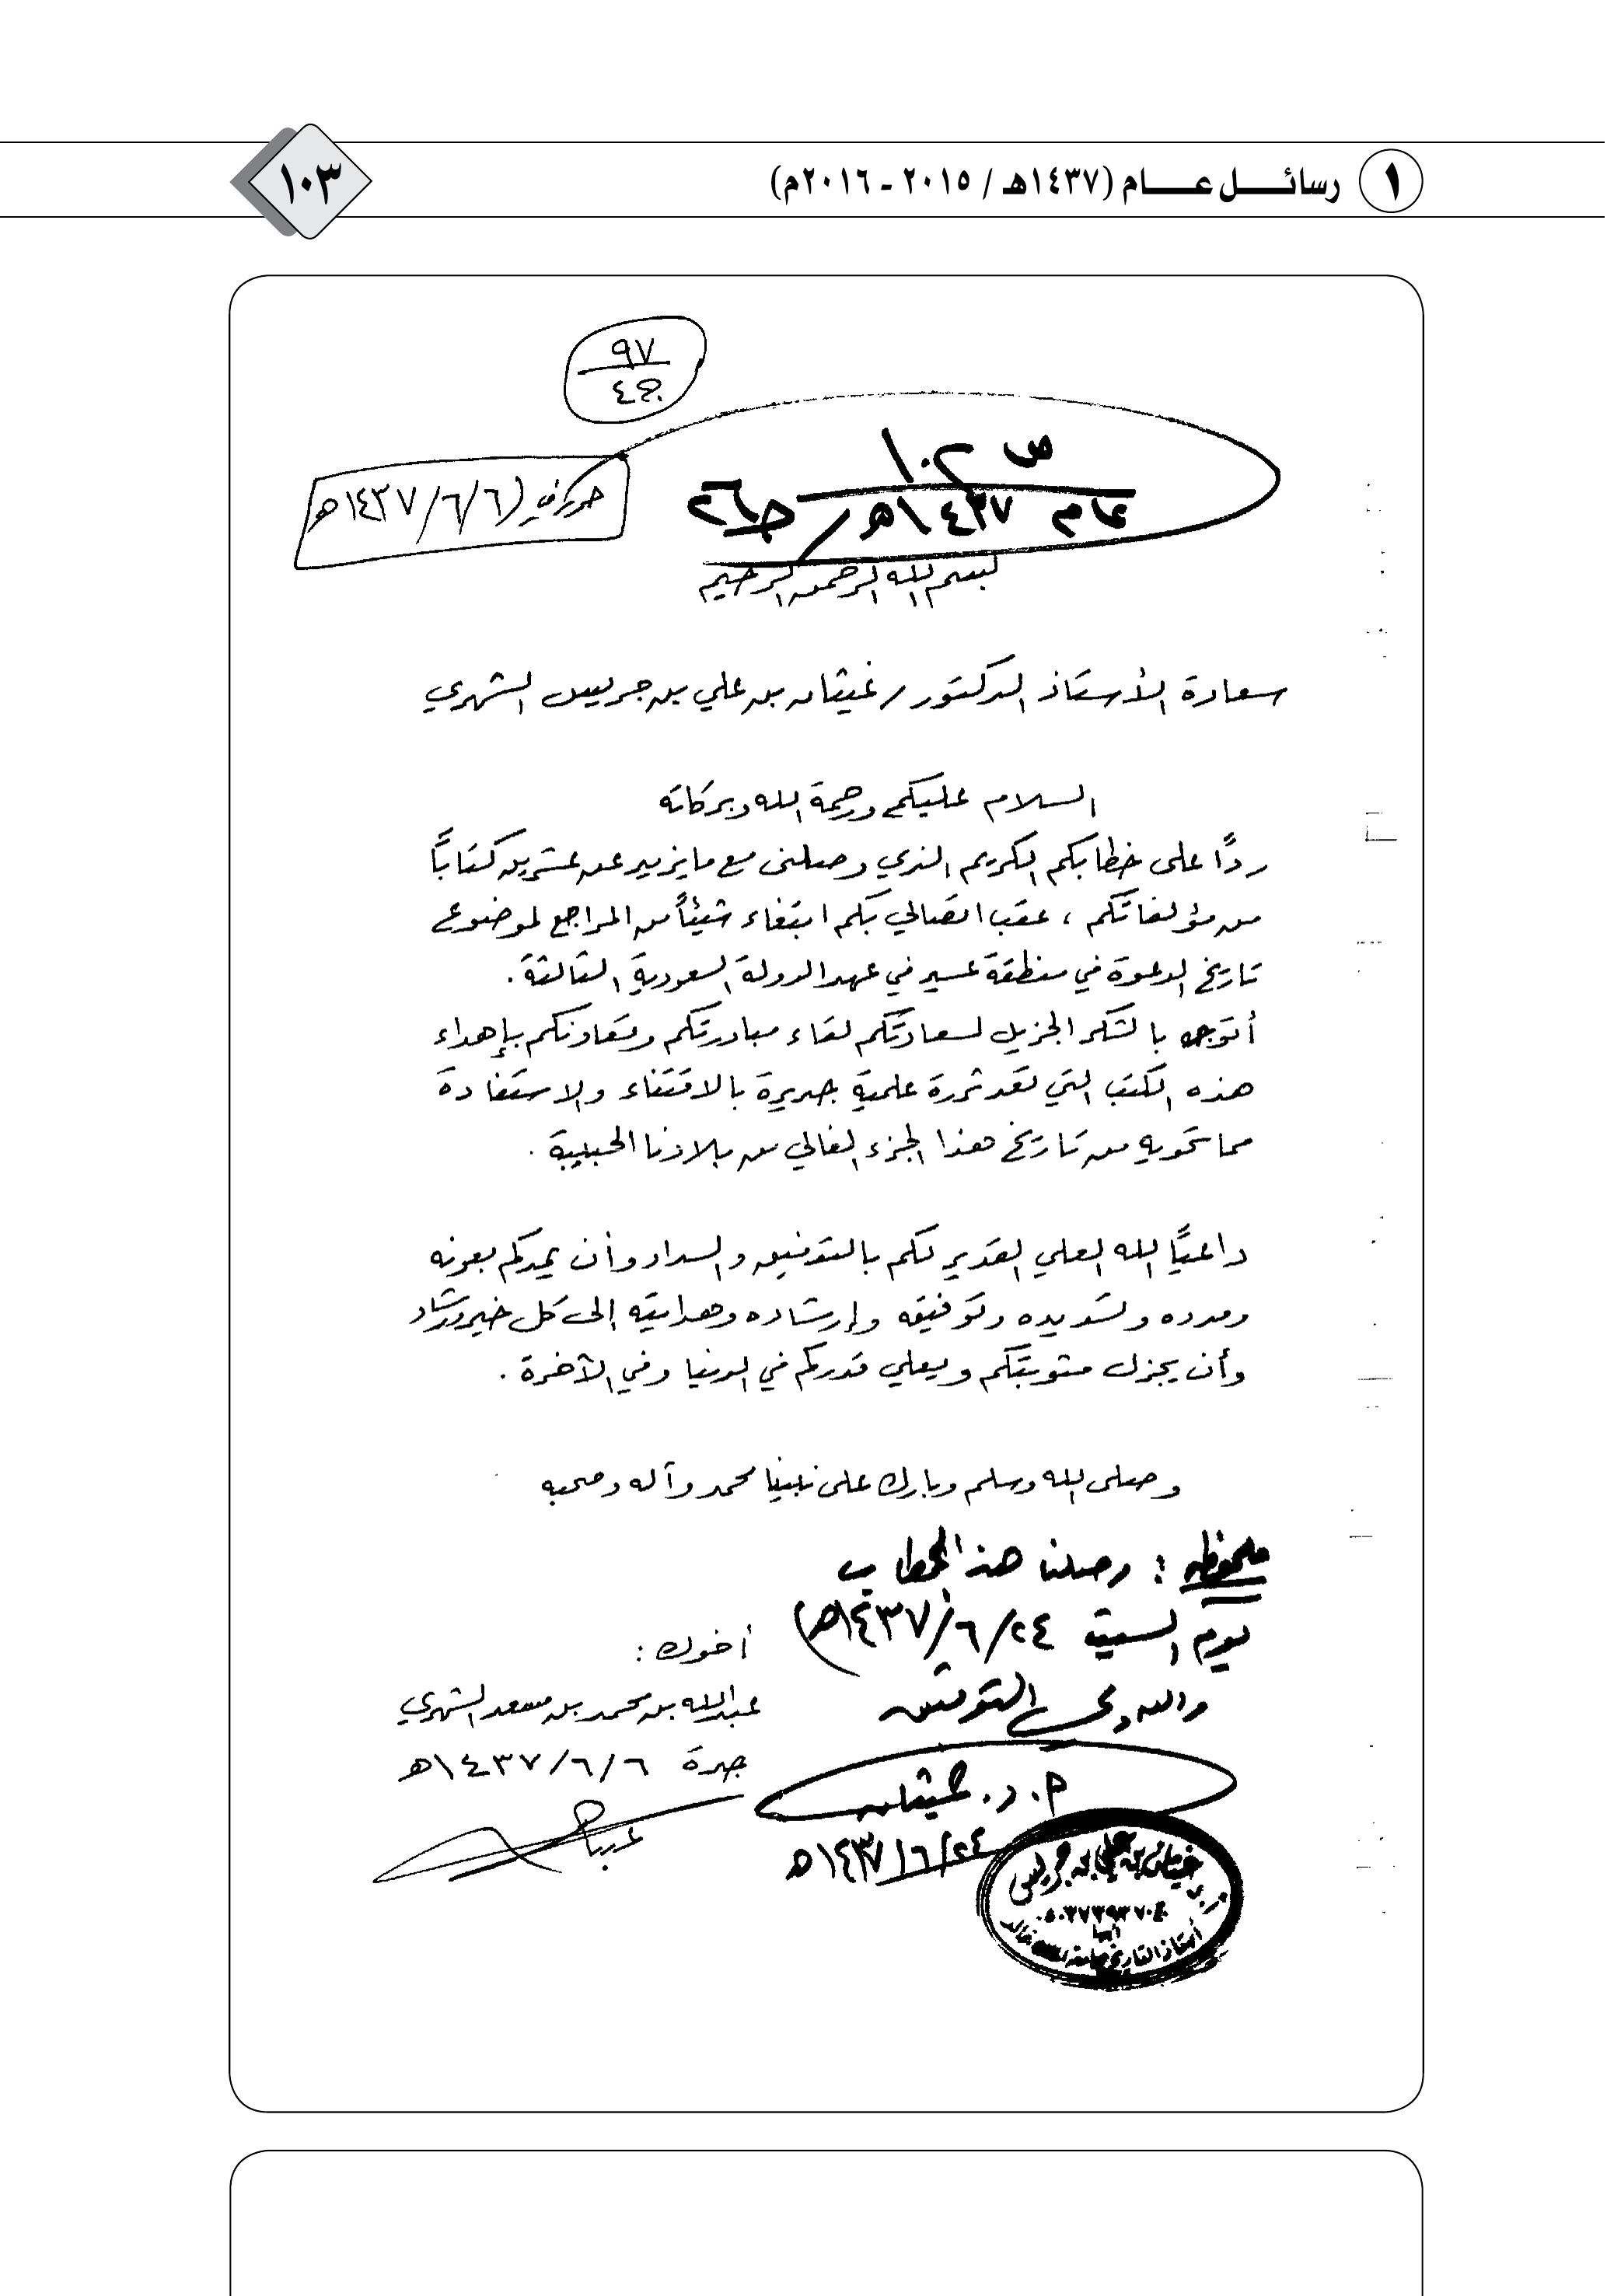 ١ رسائـــل عـــام (١٤٣٧هـ / ٢٠١٥ - ٢٠١٦م)
١٠٣
٩٧
ج٤
ص ١٠٢
عام ١٤٣٧هـ / ج٢٦
حرر في (١٤٣٧/٦/٦هـ
بسم الله الرحمن الرحيم
سعادة الأستاذ الدكتور / غيثان بن علي بن جريس الشهري
السلام عليكم ورحمة الله وبركاته
ردًا على خطابكم الكريم الذي وصلني مع ما يزيد عن عشرين كتابًا
من مؤلفاتكم ، عقب اتصالي بكم ابتغاء شيئاً من المراجع لموضوع
تاريخ الدعوة في منطقة عسير في عهد الدولة السعودية الثالثة .
أتوجه بالشكر الجزيل لسعادتكم لقاء مبادرتكم وتعاونكم بإهداء
هذه الكتب التي تعد ثروة علمية جديرة بالاقتناء والاستفادة
مما تحويه من تاريخ هذا الجزء الغالي من بلادنا الحبيبة .
داعيًا الله العلي القدير لكم بالتوفيق والسداد وأن يمدكم بعونه
ومدده وتسديده وتوفيقه وإرشاده وهدايته إلى كل خير ورشاد
وأن يجزل مثوبتكم ويعلي قدركم في الدنيا وفي الآخرة .
وصلى الله وسلم وبارك على نبينا محمد وآله وصحبه
ملحوظة : وصلنا هذا الخطاب
يوم السبت ١٤٣٧/٦/٢٤هـ)
والله ولي التوفيق
أ. د. غيثان
١٤٣٧/٦/٢٤هـ
أخوك :
عبدالله بن محمد بن مسعد الشهري
جدة ١٤٣٧/٦/٦هـ
غيثان بن علي بن جريس
أبها
أستاذ التاريخ جامعة الملك خالد